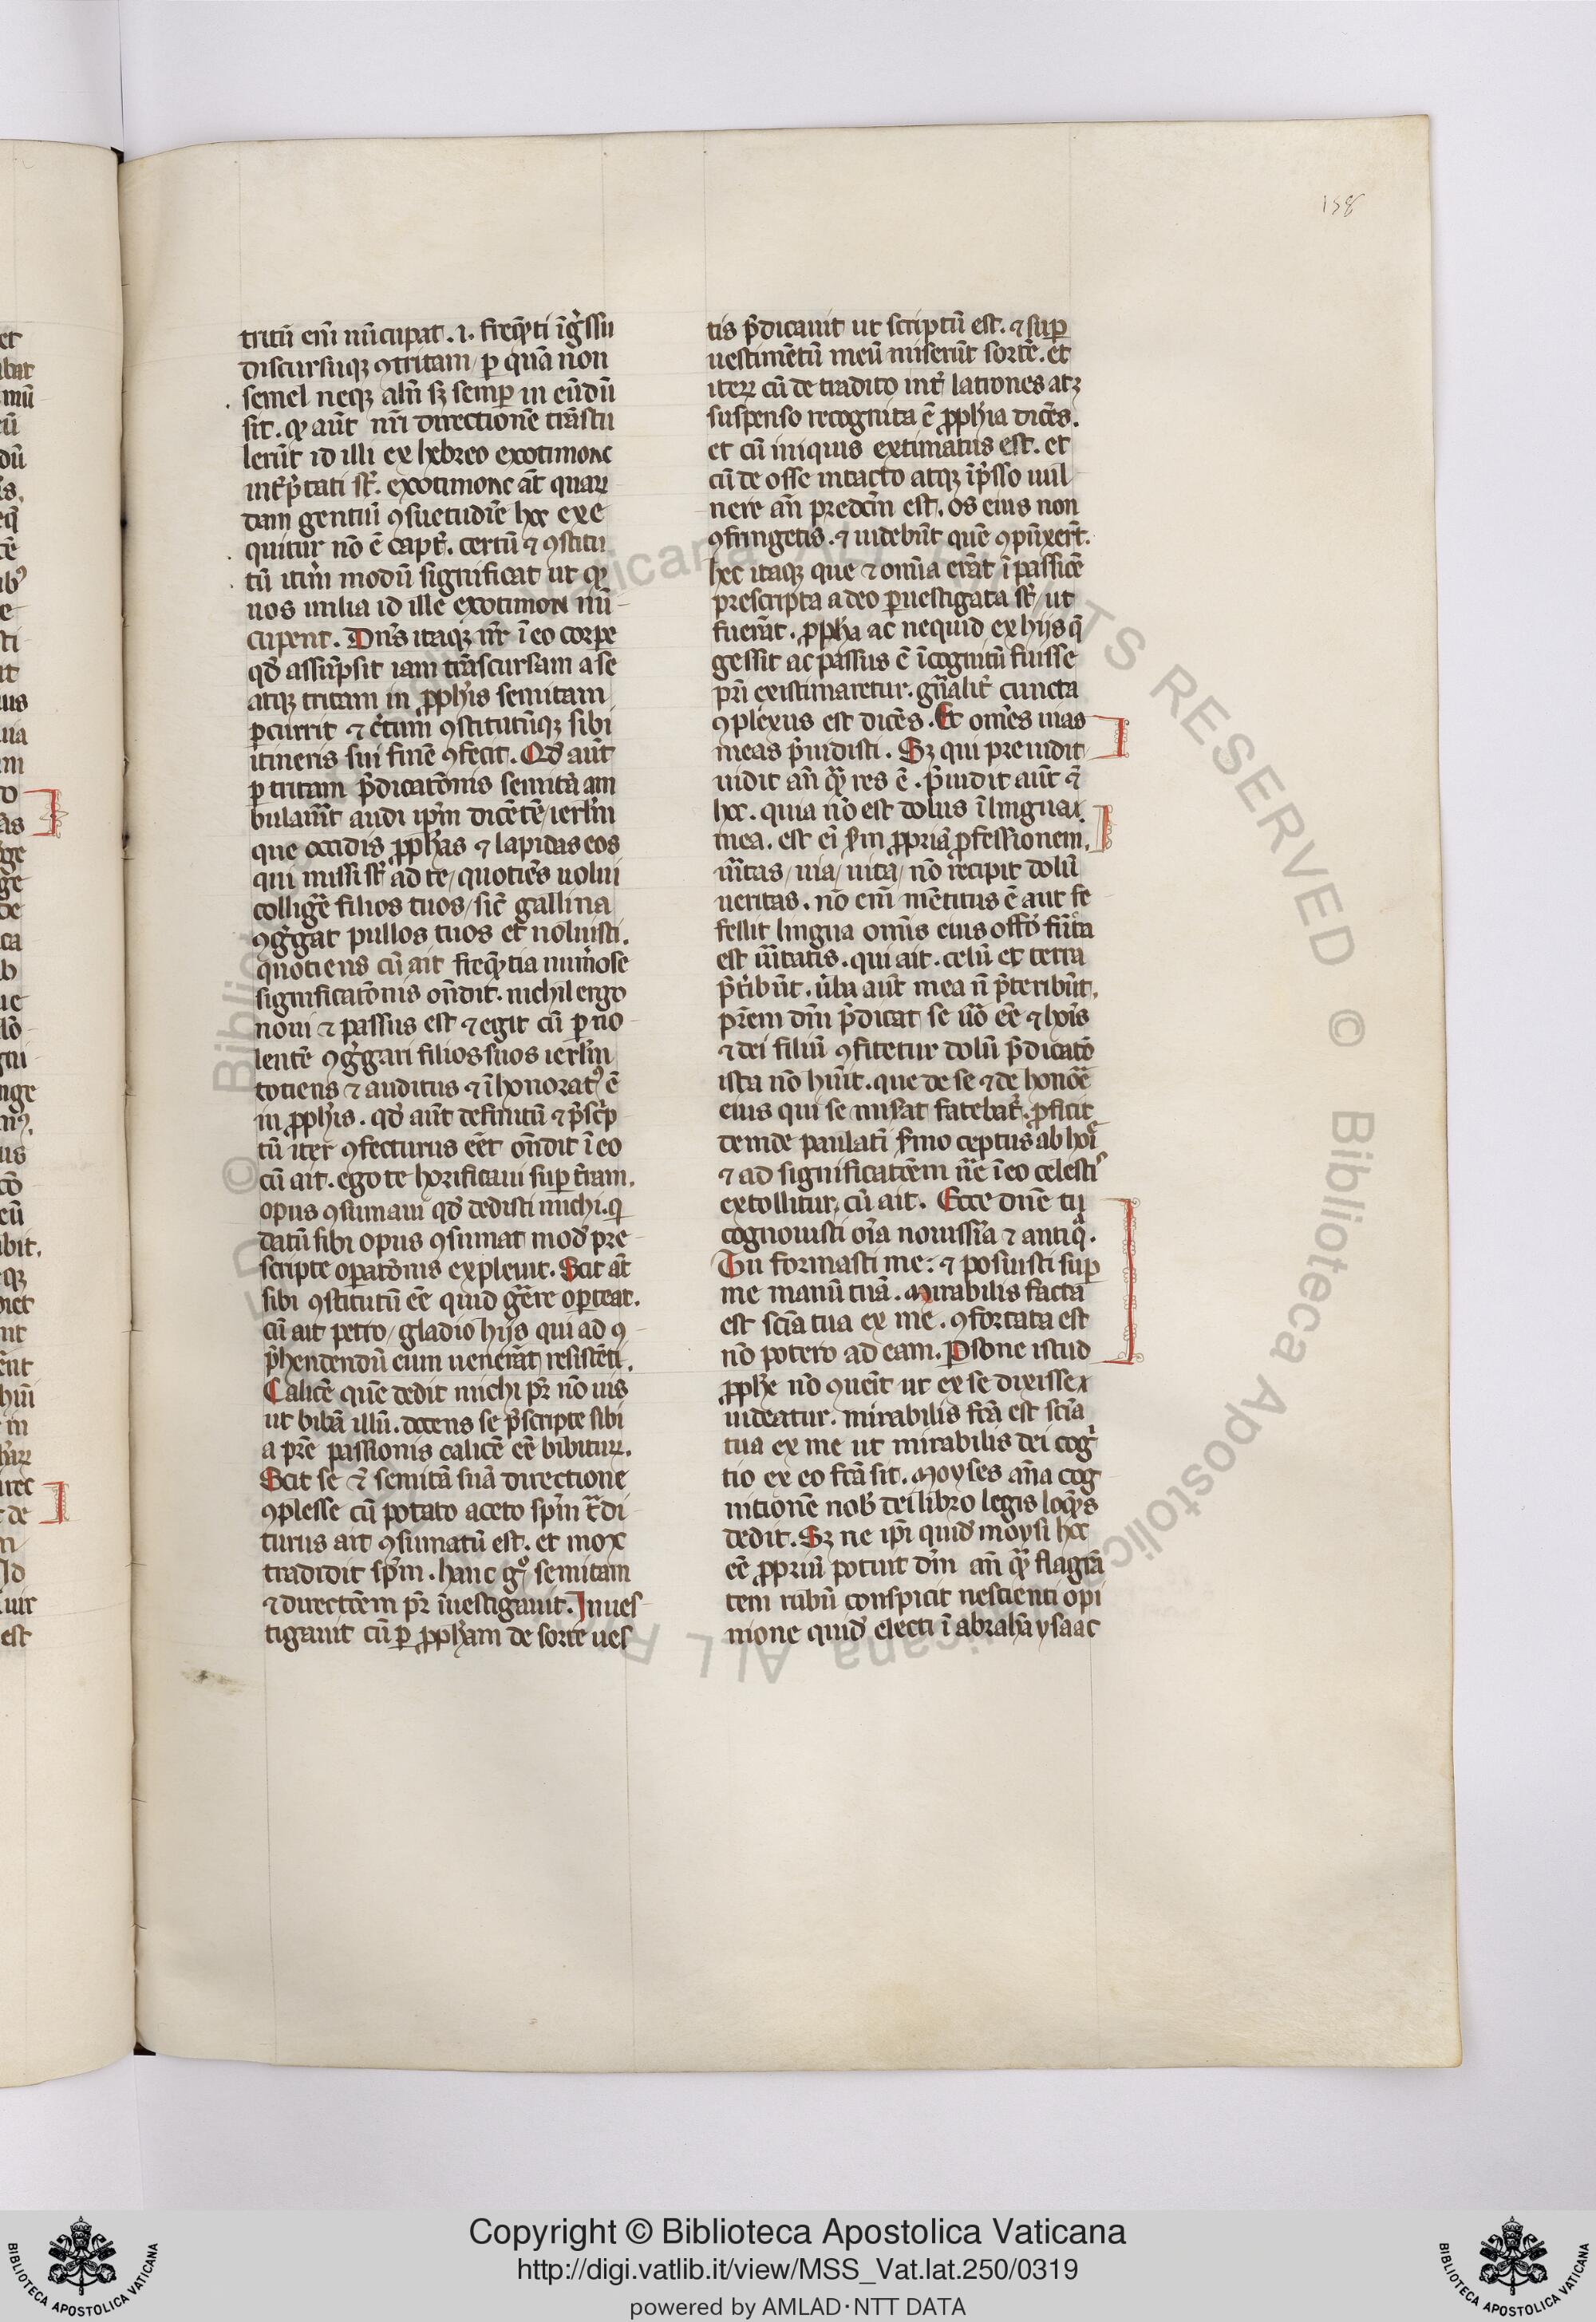 158
tritū enī nūcupat. i. freq̄nti īgͥssu
discursuqꝫ ꝯtritam / ꝑ quā non
semel neqꝫ alit̄ sꝫ semꝑ in eūdū
sit. qͥ aūt nr̄i directionē trāstu
lerūt id illi ex hebreo exotimonc
int̄p̄tati st̄. exotimonc āt quan
dam gentiū ꝯsuetudīe hoc exe
quitur nō ē capt̄. certū ⁊ ꝯstitu
tū itin̄is modū significat ut qͥ
uos milia id ille exotimon nū
cupent. Dn̄s itaqꝫ nr̄ ī eo corꝑe
qd̄ assūpsit iam trāscursam a se
atqꝫ tritam in ꝓph̄is semitam
ꝑcurrit ⁊ c̄tum ꝯstitutūqꝫ sibi
itineris sui finē ꝯfecit. Qd̄ aūt
ꝑ tritam p̄dicatōnis semitā am
bulau̅it audi ip̄m dicētē / ierl̄m
que occidis ꝓph̄as ⁊ lapidas eos
qui missi st̄ ad te / quotiēs uolui
colliḡe filios tuos / sic̄ gallina
ꝯgͥgat pullos tuos et noluisti.
quotiens cū ait freq̄ntia num̄ose
significatōnis on̄dit. nichil ergo
noui ⁊ passus est ⁊ egit cū ꝑ no
lentē ꝯgͥgari filios suos ierl̄m
totiens ⁊ auditus ⁊ īhonoratꝰ ē
in ꝓph̄is. qd̄ aūt definitū ⁊ p̄sc̄p
tū iter ꝯfecturus eēt on̄dit ī eo
cū ait. ego te horificaui suꝑ t̄ram.
opus ꝯsumaui qd̄ dedisti michi. qͥ
datū sibi opus ꝯsumat mod̄ pre
scripte oꝑatōnis expleuit. Scit āt
sibi ꝯstitutū eē quid gēre oꝑteat.
cū ait petro / gladio hijs qui ad ꝯ
p̄hendendū eum uenerāt resistēti.
Calicē quē dedit michi pr̄ nō uis
ut bibā illū. docens se p̄scripte sibi
a pr̄e passionis calicē eē bibiturꝝ.
Scit se ⁊ semitā suā directione
ꝯplesse cū potato aceto sp̄m t̄di
turus ait ꝯsumatū est. et mox
tradidit sp̄m. hanc gͦ semitam
⁊ directōem pr̄ īuestigauit. Inues
tigauit cū ꝑ ꝓph̄am de sorte ues
tis p̄dicauit ut scriptū est. ⁊ suꝑ
uestimētū meū miserūt sortē. et
iterꝝ cū de tradito int̄ lationes atqꝫ
suspenso recognita ē ꝓph̄ia dicēs.
et cū iniquis extimatus est. et
cū de osse intacto atqꝫ īp̄sso uul
nere an̄ predc̄m est. os eius non
ꝯfringetis. ⁊ uidebūt quē ꝯpūxert̄.
hec itaqꝫ que ⁊ om̄ia erāt ī passiōe
prescripta adeo ꝑuestigata st̄ / ut
fuerāt. ꝓpha ac nequid ex hijs q̄
gessit ac passus ē īcognitū fuisse
pri existimaretur. gn̄alit̄ cuncta
ꝯplexus est dicēs. Et om̄es uias
meas p̄uidisti. Sꝫ qui preuidit
uidit an̄ qͣ res ē. p̄uidit aūt ⁊
hoc. quia nō est dolus ī lingua
mea. est ei s̄m ꝓpriā ꝓfessionem.
u̅itas / uia / uita / nō recipit dolū
ueritas. nō enī mētitus ē aut fe
fellit lingua om̄is eius off̄o fūcta
est u̅itatis. qui ait. celū et terra
p̄t̄ibūt. ūba aūt mea n̄ p̄teribūt.
pr̄em dm̄ p̄dicat se ūo eē ⁊ hoīs
⁊ dei filiū ꝯfitetur dolū p̄dicatō
ista nō hūit. que de se ⁊ de honōe
eius qui se miserat fatebat̄. ꝓficit
deinde paulatī s̄mo ceptus ab hoīe
⁊ ad significatōem nr̄e ī eo celestiꝰ
extollitur / cū ait. Ecce dn̄e tu
cognouisti oīa nouissīa ⁊ antiqͣ.
Tu formasti me: ⁊ posuisti suꝑ
me manū tuā. Mirabilis facta
est scīa tua ex me. ꝯfortata est
nō potero ad eam. Psone istud
ꝓph̄e nō ꝯueīt ut ex se dixisse
uideatur. mirabilis fc̄a est scīa
tua ex me ut mirabilis dei cogͥ
tio ex eo fc̄a sit. Moyses an̄a cog
nitionē nob̄ dei libro legis loq̄ns
dedit. Sꝫ ne ip̄i quid̄ moysi hoc
eē ꝓpriū potuit dm̄ an̄ qͣ flagrā
tem rubū conspicit nescienti opi
nione quid̄ electi ī abrahā ysaac
Copyright © Biblioteca Apostolica Vaticana
http://digi.vatlib.it/view/MSS_Vat.lat.250/0319
powered by AMLAD·NTT DATA
BIBLIOTECA APOSTOLICA VATICANA
BIBLIOTECA APOSTOLICA VATICANA